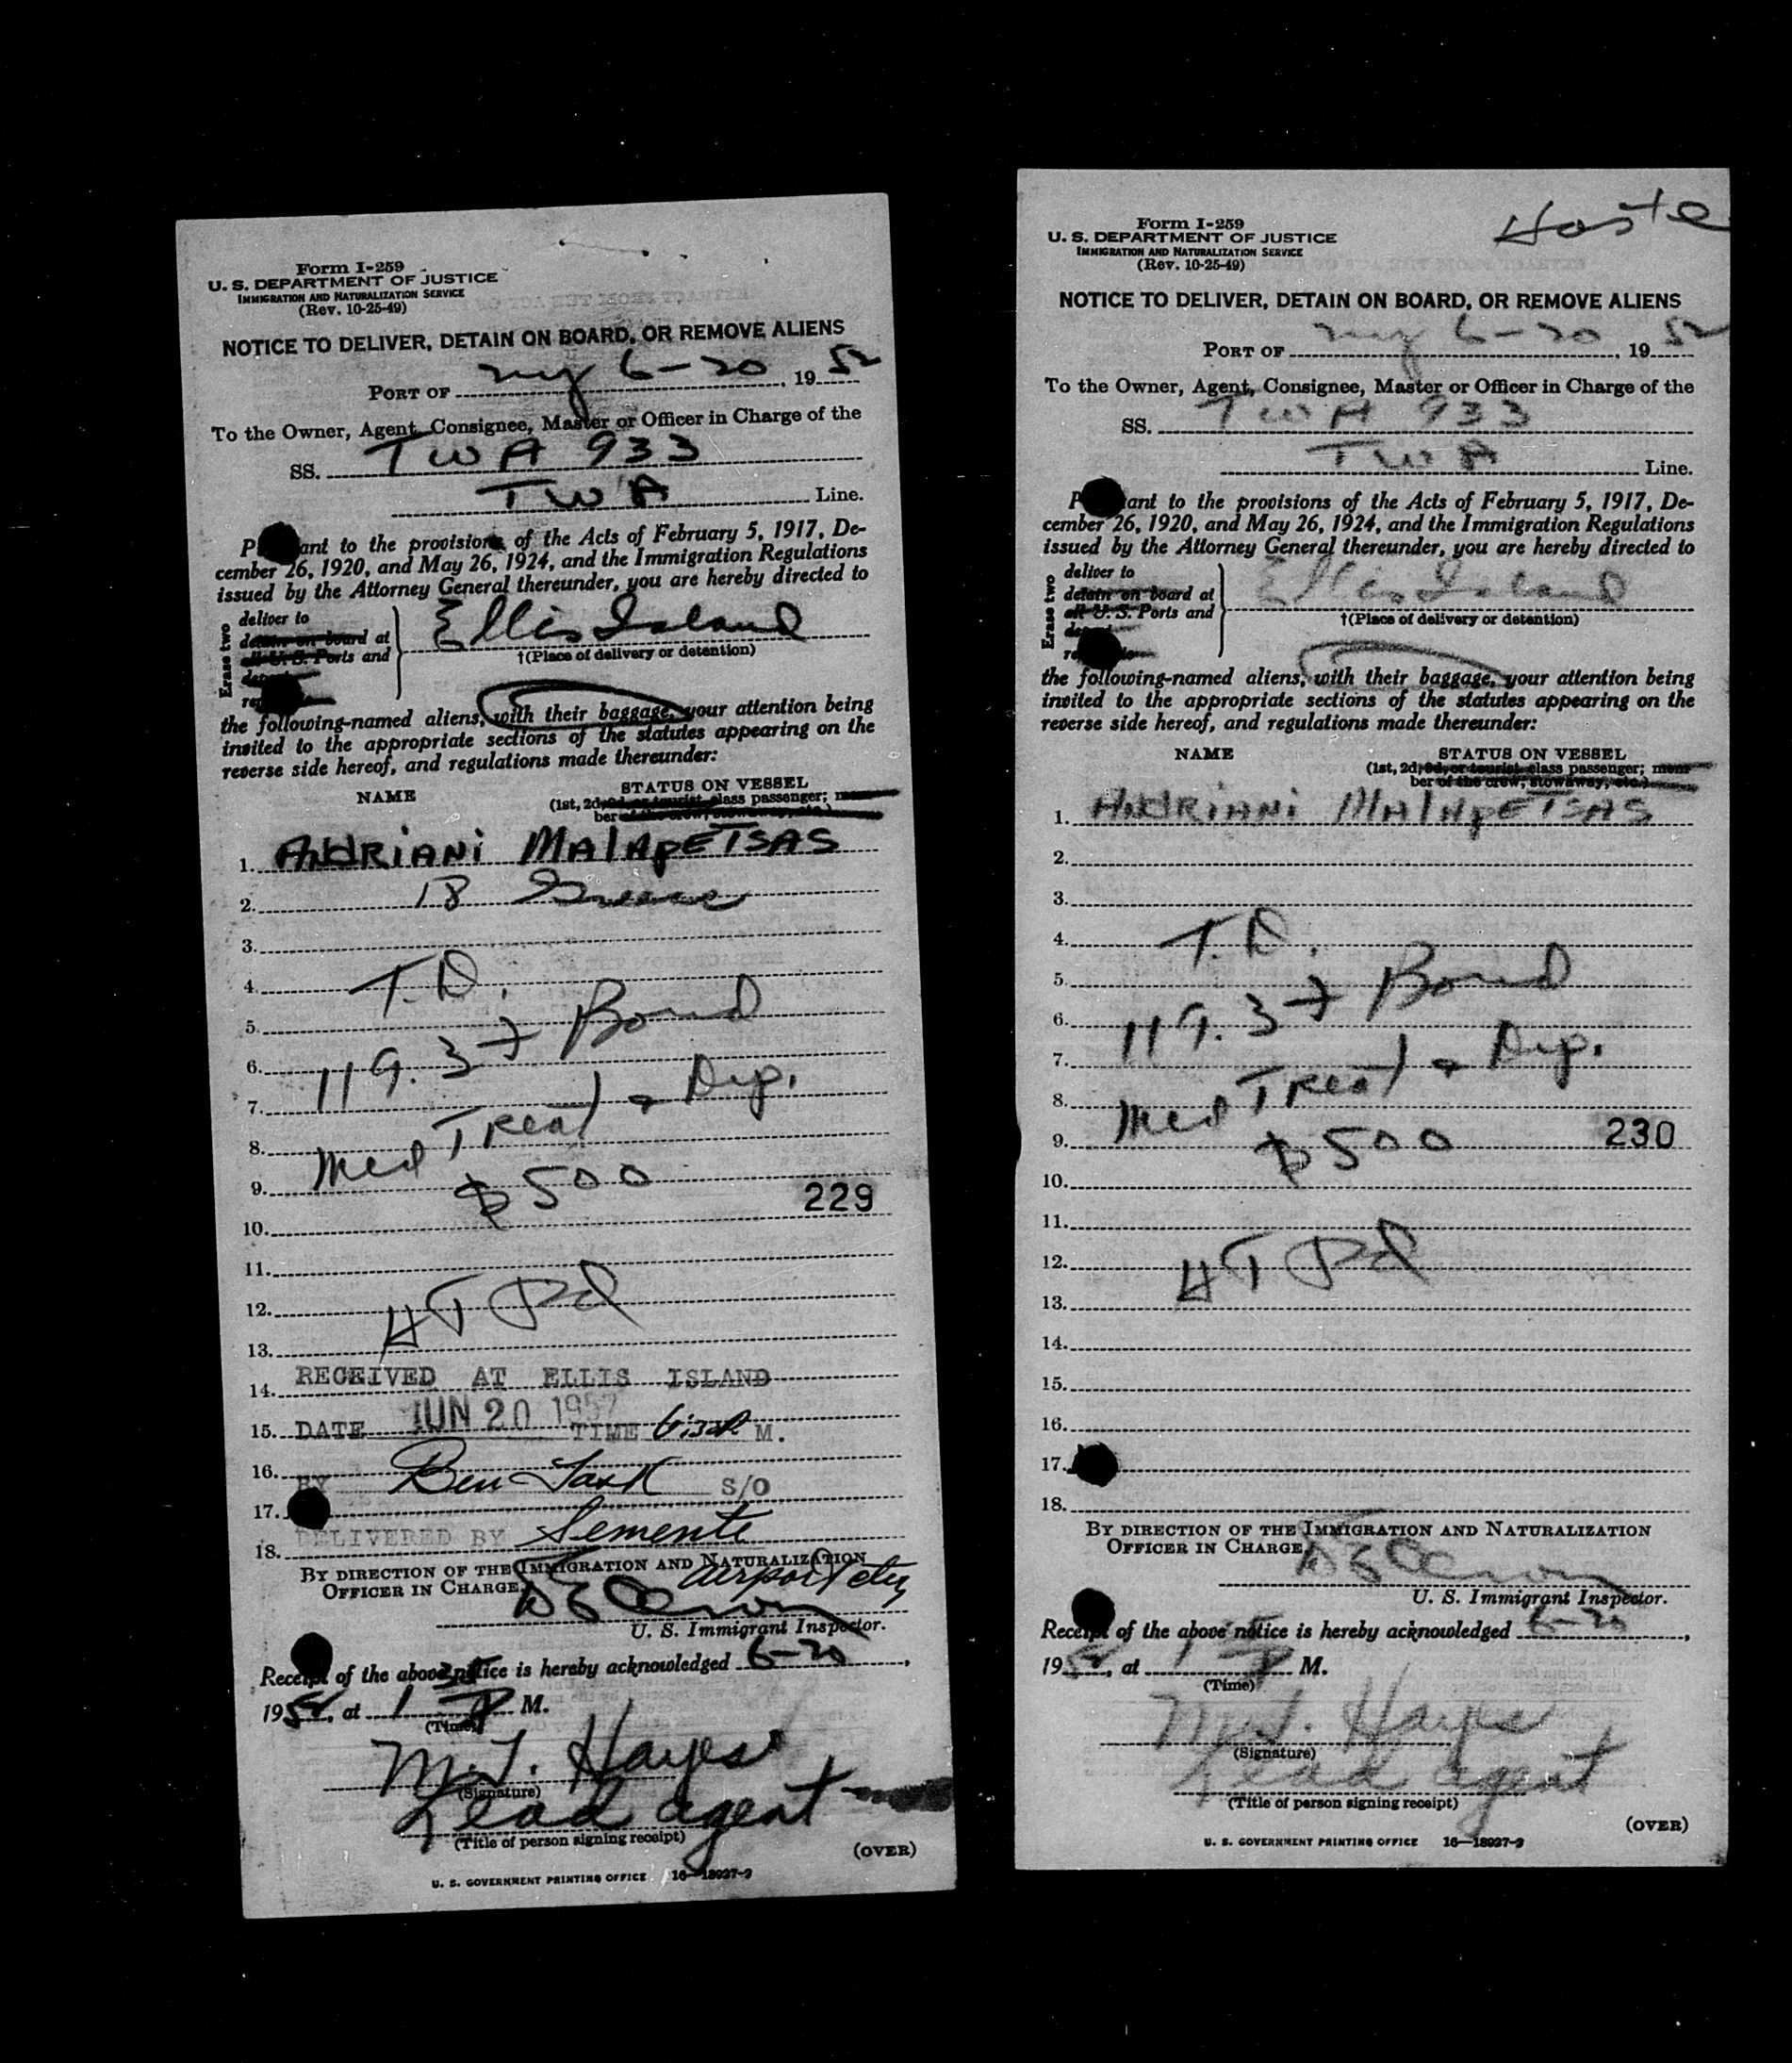 Form I-259
U. S. DEPARTMENT OF JUSTICE
IMMIGRATION AND NATURALIZATION SERVICE
(Rev. 10-25-49)
NOTICE TO DELIVER, DETAIN ON BOARD, OR REMOVE ALIENS
PORT OF NY 6-20, 1952
To the Owner, Agent, Consignee, Master or Officer in Charge of the
SS. TWA 933
TWA Line.
P ant to the provisions of the Acts of February 5, 1917, De-
cember 26, 1920, and May 26, 1924, and the Immigration Regulations
issued by the Attorney General thereunder, you are hereby directed to
Erase two
deliver to
detain on board at
all U. S. Ports and
Ellis Island
†(Place of delivery or detention)
the following-named aliens, with their baggage, your attention being
invited to the appropriate sections of the statutes appearing on the
reverse side hereof, and regulations made thereunder:
NAME
STATUS ON VESSEL
(1st, 2d, 3d, or tourist class passenger; mem-
ber of the crew, stowaway, etc.)
1. ANDRIANI MALAPETSAS
2. 18 Greece
3.
4. T.D.
5. Bond
6. 119.3 +
7. Dep.
8. Med Treat +
9. $500
229
10.
11.
12. HT Pd
13.
14. RECEIVED AT ELLIS ISLAND
15. DATE JUN 20 1952 TIME M.
16. BY Ben Task S/O
17.
18. DELIVERED BY Semente
airport
BY DIRECTION OF THE IMMIGRATION AND NATURALIZATION
OFFICER IN CHARGE,
U. S. Immigrant Inspector.
Receipt of the above notice is hereby acknowledged 6-20,
1952, at 1 35 P M.
(Time)
M.J. Hayes
(Signature)
Lead agent
(Title of person signing receipt)
(OVER)
U. S. GOVERNMENT PRINTING OFFICE 16—18927-2
Form I-259
U. S. DEPARTMENT OF JUSTICE
IMMIGRATION AND NATURALIZATION SERVICE
(Rev. 10-25-49)
Hoste
NOTICE TO DELIVER, DETAIN ON BOARD, OR REMOVE ALIENS
PORT OF NY 6-20, 1952
To the Owner, Agent, Consignee, Master or Officer in Charge of the
SS. TWA 933
TWA Line.
P ant to the provisions of the Acts of February 5, 1917, De-
cember 26, 1920, and May 26, 1924, and the Immigration Regulations
issued by the Attorney General thereunder, you are hereby directed to
Erase two
deliver to
detain on board at
all U. S. Ports and
Ellis Island
†(Place of delivery or detention)
the following-named aliens, with their baggage, your attention being
invited to the appropriate sections of the statutes appearing on the
reverse side hereof, and regulations made thereunder:
NAME
STATUS ON VESSEL
(1st, 2d, 3d, or tourist class passenger; mem-
ber of the crew, stowaway, etc.)
1. ANDRIANI MALAPETSAS
2.
3.
4. T.D.
5. Bond
6. 119.3 +
7. Dep.
8. Med Treat +
9. $500
230
10.
11.
12. HT Pd
13.
14.
15.
16.
17.
18.
BY DIRECTION OF THE IMMIGRATION AND NATURALIZATION
OFFICER IN CHARGE,
U. S. Immigrant Inspector.
Receipt of the above notice is hereby acknowledged 6-20,
1952, at 1 P M.
(Time)
M.J. Hayes
(Signature)
Lead agent
(Title of person signing receipt)
(OVER)
U. S. GOVERNMENT PRINTING OFFICE 16—18927-2